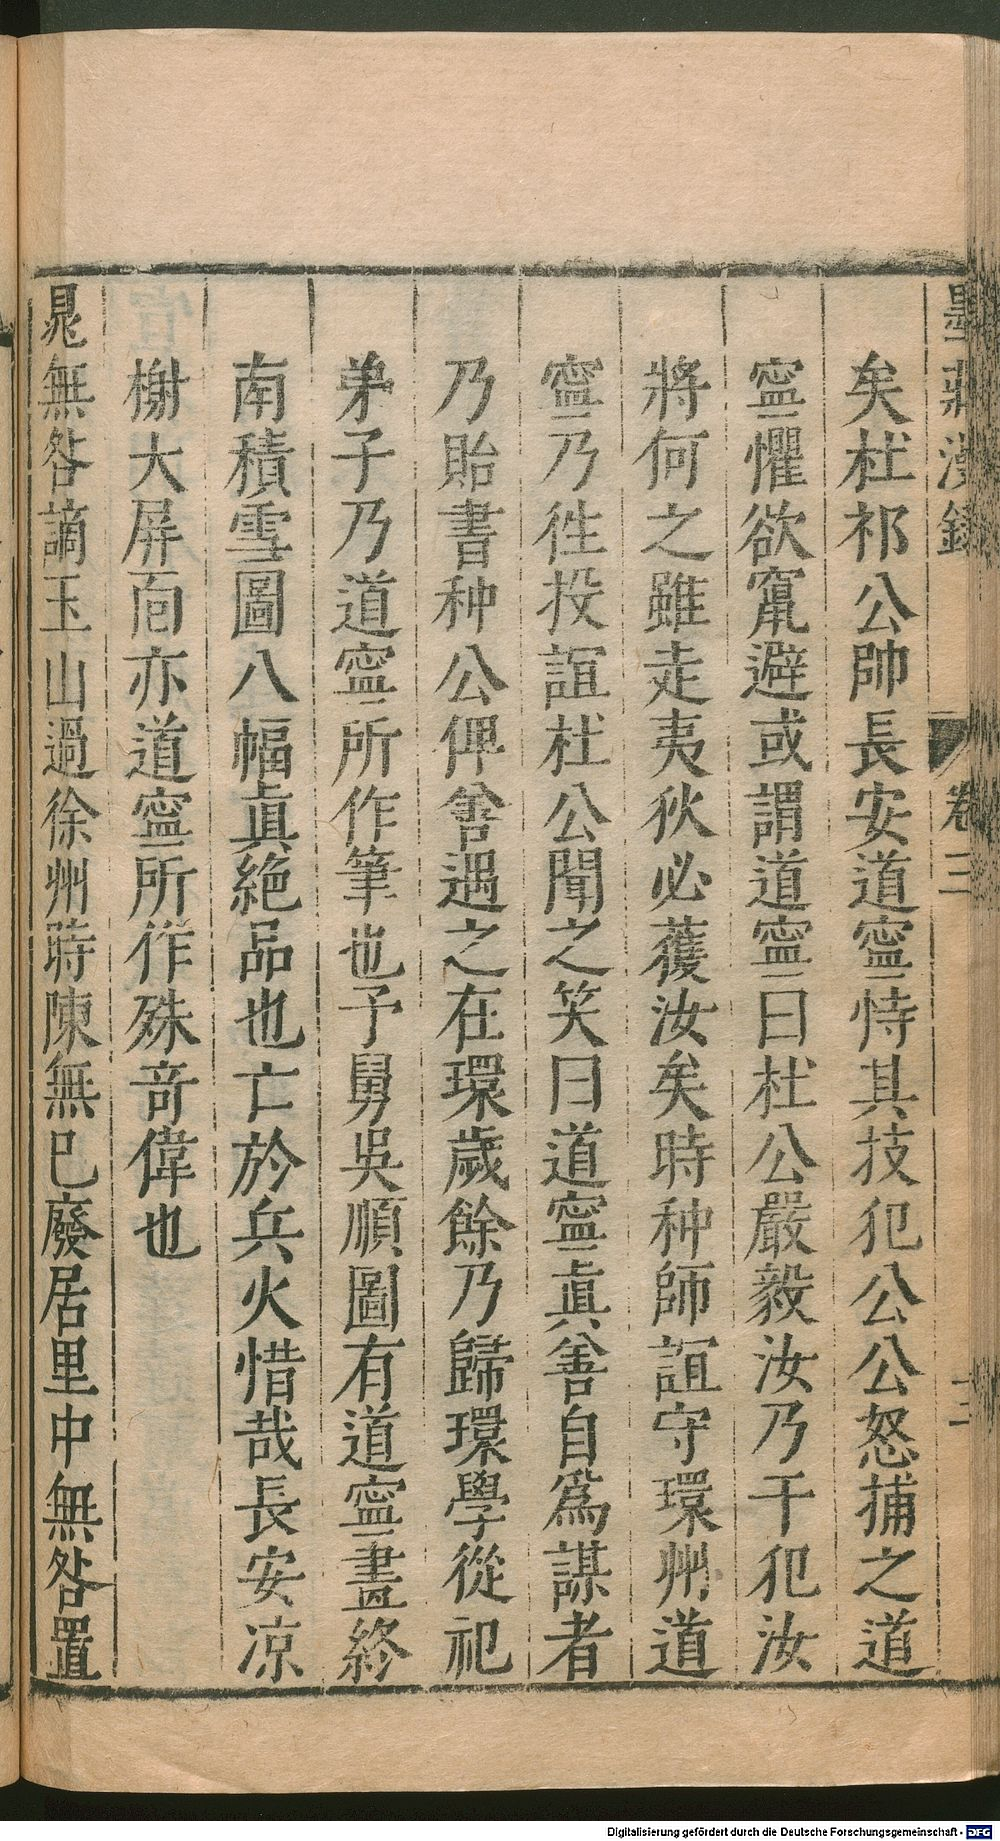 墨莊漫錄 卷三 三
矣杜祁公帥長安道寧恃其技犯公公怒捕之道
寧懼欲竄避或謂道寧曰杜公嚴毅汝乃干犯汝
將何之雖走夷狄必獲汝矣時种師誼守環州道
寧乃徃投誼杜公聞之笑曰道寧眞善自爲謀者
乃貽書种公俾善遇之在環歲餘乃歸環學從祀
弟子乃道寧所作筆也予舅吳順圖有道寧畫終
南積雪圖八幅眞絕品也亡於兵火惜哉長安凉
榭大屏靣亦道寧所作殊竒偉也
晁無咎謫玉山過徐州時陳無巳廢居里中無咎置
Digitalisierung gefördert durch die Deutsche Forschungsgemeinschaft - DFG